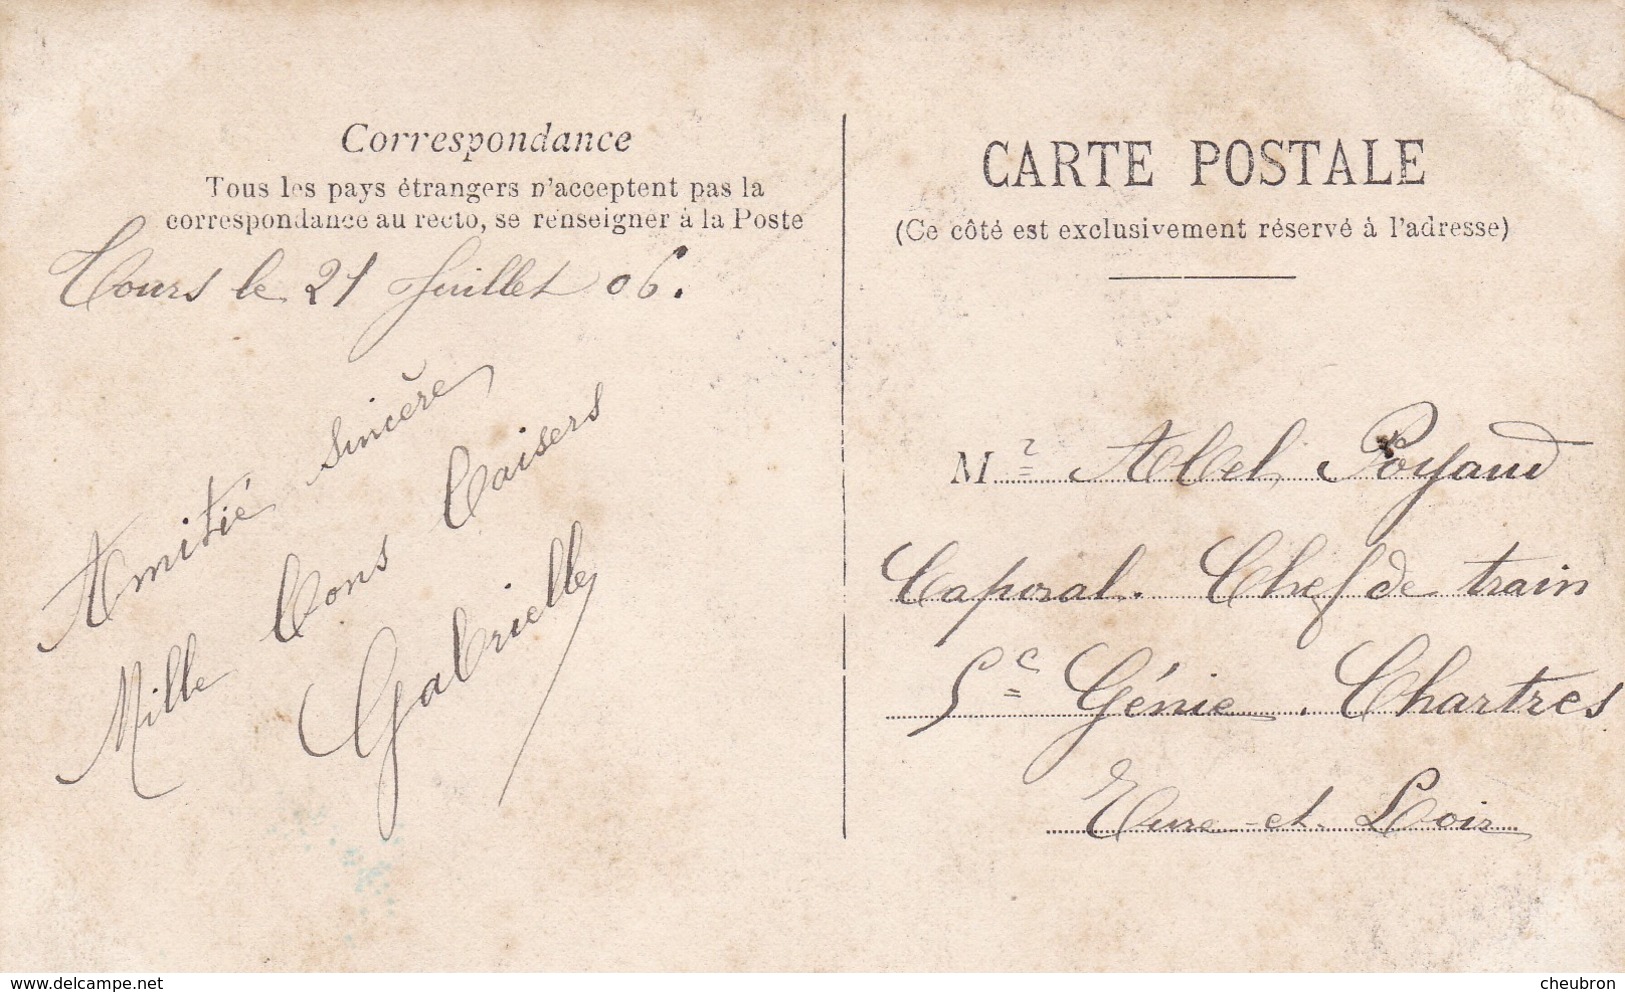 Correspondance
Tous les pays étrangers n'acceptent pas la
correspondance au recto, se renseigner à la Poste
Tours le 21 Juillet 06.
Amitié sincère
Mille bons baisers
Gabrielle
CARTE POSTALE
(Ce côté est exclusivement réservé à l'adresse)
Mr Abel Poyaud
Caporal. Chef de train
5e Génie. Chartres
Eure-et-Loir
www.delcampe.net
cheubron